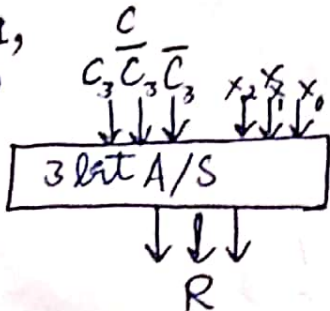 C
C₃ C̅₃ C̅₃ x₂ x₁ x₀
3 bit A/S
R